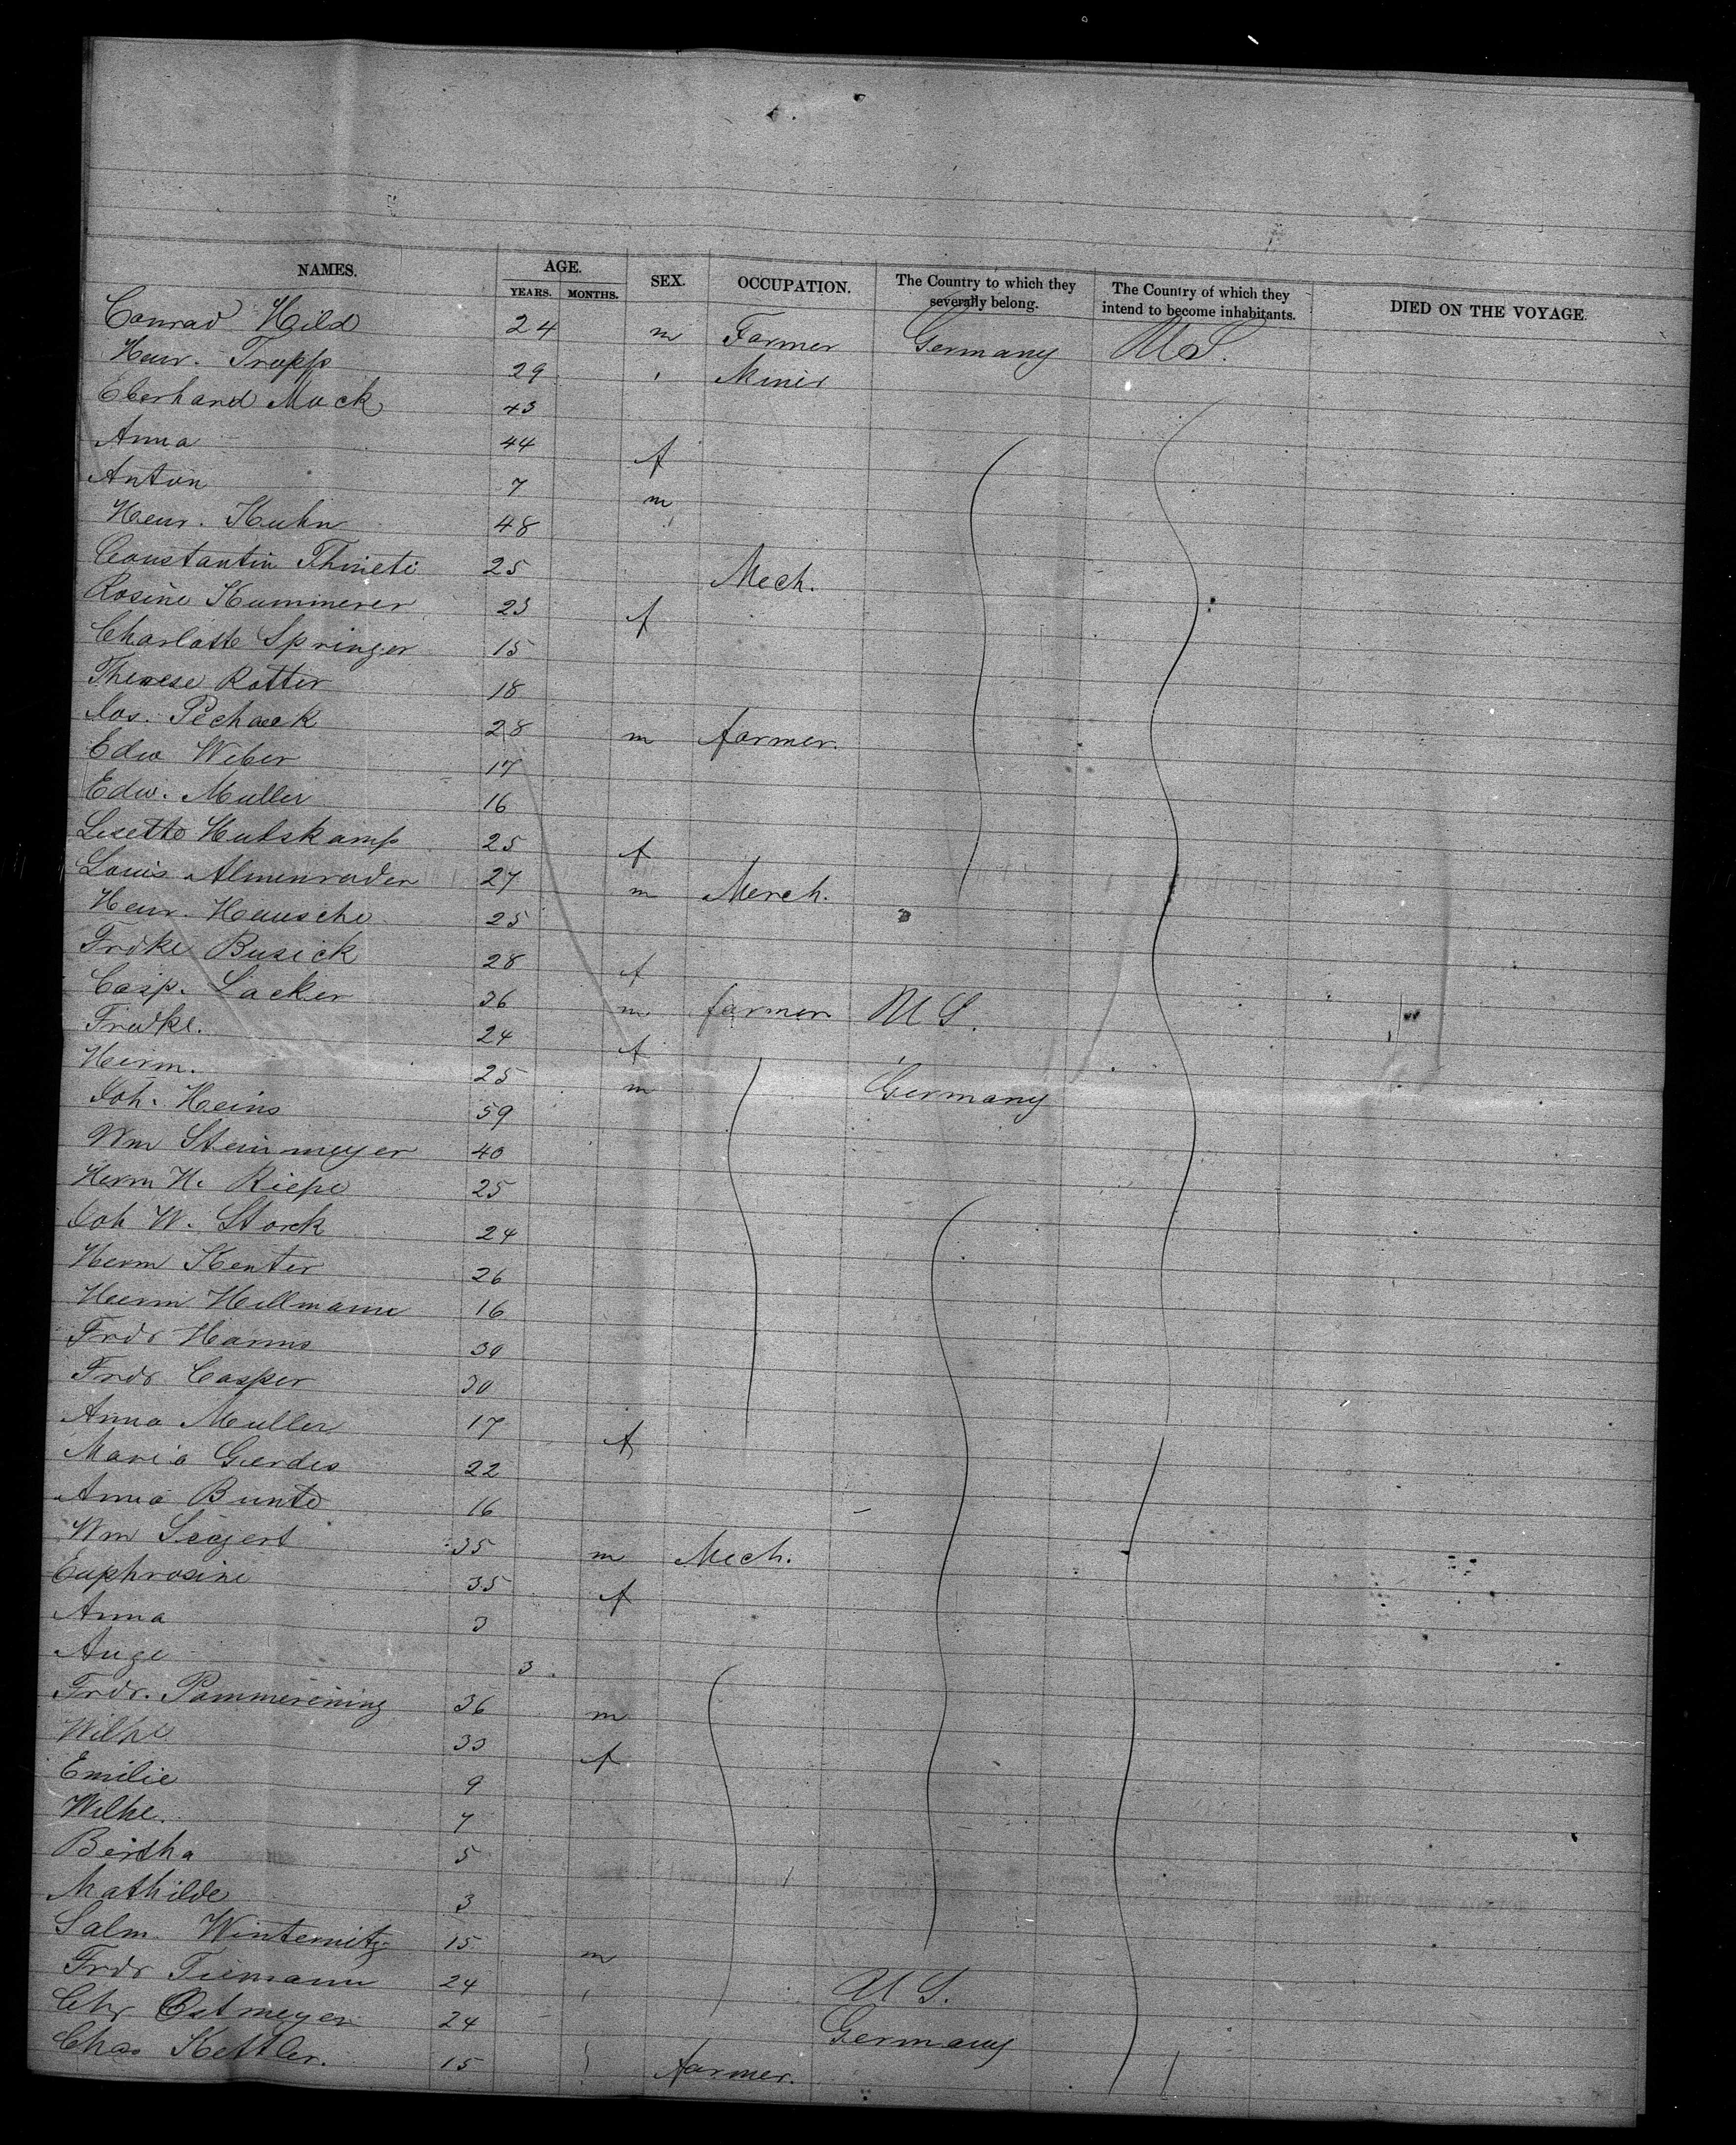 NAMES. AGE. SEX. OCCUPATION. The Country to which they severally belong. The Country of which they intend to become inhabitants. DIED ON THE VOYAGE.
YEARS. MONTHS.
Conrad Hild 24 m Farmer Germany U.S.
Henr. Trapp 29 " Miner
Eberhard Mack 43
Anna 44 f
Anton 7 m
Henr. Kuhn 48 "
Constantin 25 Mech.
Rosine Kummerer 23 f
Charlotte Springer 15
Therese Rotter 18
Jos. Pechacek 28 m farmer.
Edw Weber 17
Edw. Muller 16
Lisette Hulskamp 25 f
Louis Almenrader 27 m Merch.
Henr. Hensche 25
Frdke Busick 28 f
Casp. Lacker 36 m farmer U S.
Fredke. 24 f
Herm. 25 m Germany
Joh. Heins 59
Wm Steinmeyer 40
Herm H. Riepe 25
Joh W. Storck 24
Herm Kenter 26
Herm Hillmann 16
Frdr Harms 30
Frdr Casper 30
Anna Muller 17 f
Maria Gerdes 22
Anna Bunte 16
Wm Siegert 35 m Mech.
Euphrosine 35 f
Anna 3
Auge 3
Frdr. Pommerening 36 m
Wilhe 33 f
Emilie 9
Wilhe. 7
Bertha 5
Mathilde 3
Salm. Winternitz 15 m
Frdr Tiemann 24 " U S.
Chr Ostmeyer 24 Germany
Chas Kettler. 15 farmer.